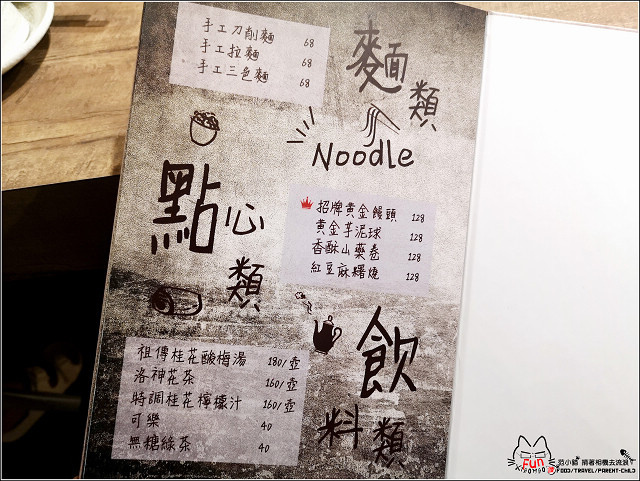 手工刀削麵 68
手工拉麵 68
手工三色麵 68
麵類
Noodle
點心類
招牌黃金饅頭 128
黃金芋泥球 128
香酥山藥卷 128
紅豆麻糬燒 128
飲料類
祖傳桂花酸梅湯 180/壺
洛神花茶 160/壺
特調桂花檸檬汁 160/壺
可樂 40
無糖綠茶 40
FUN
小貓 揹著相機去流浪
FOOD/TRAVEL/PARENT-CHILD